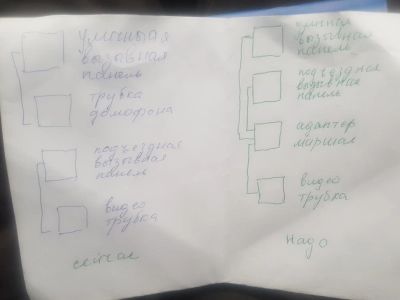 уличная
вызывная
панель
трубка
домофона
подъездная
вызывная
панель
видео
трубка
сейчас
уличная
вызывная
панель
подъездная
вызывная
панель
адаптер
маршал
видео
трубка
надо